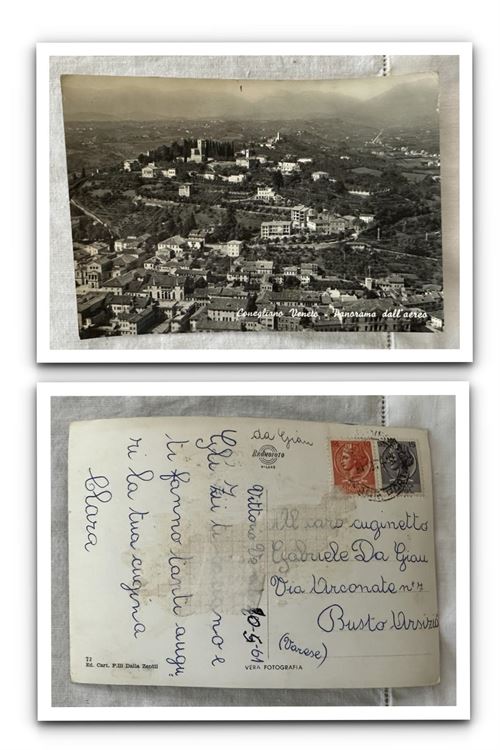 Conegliano Veneto - Panorama dall'aereo
da Giau
BROMOFOTO
MILANO
Vittorio
10-5-61
Gli Zii ti e
ti fanno tanti augu
ri la tua cugina
Clara
Al caro cuginetto
Gabriele Da Giau
Via Arconate n° 7
Busto Arsizio
(Varese)
72
Ed. Cart. F.lli Dalla Zentil
VERA FOTOGRAFIA